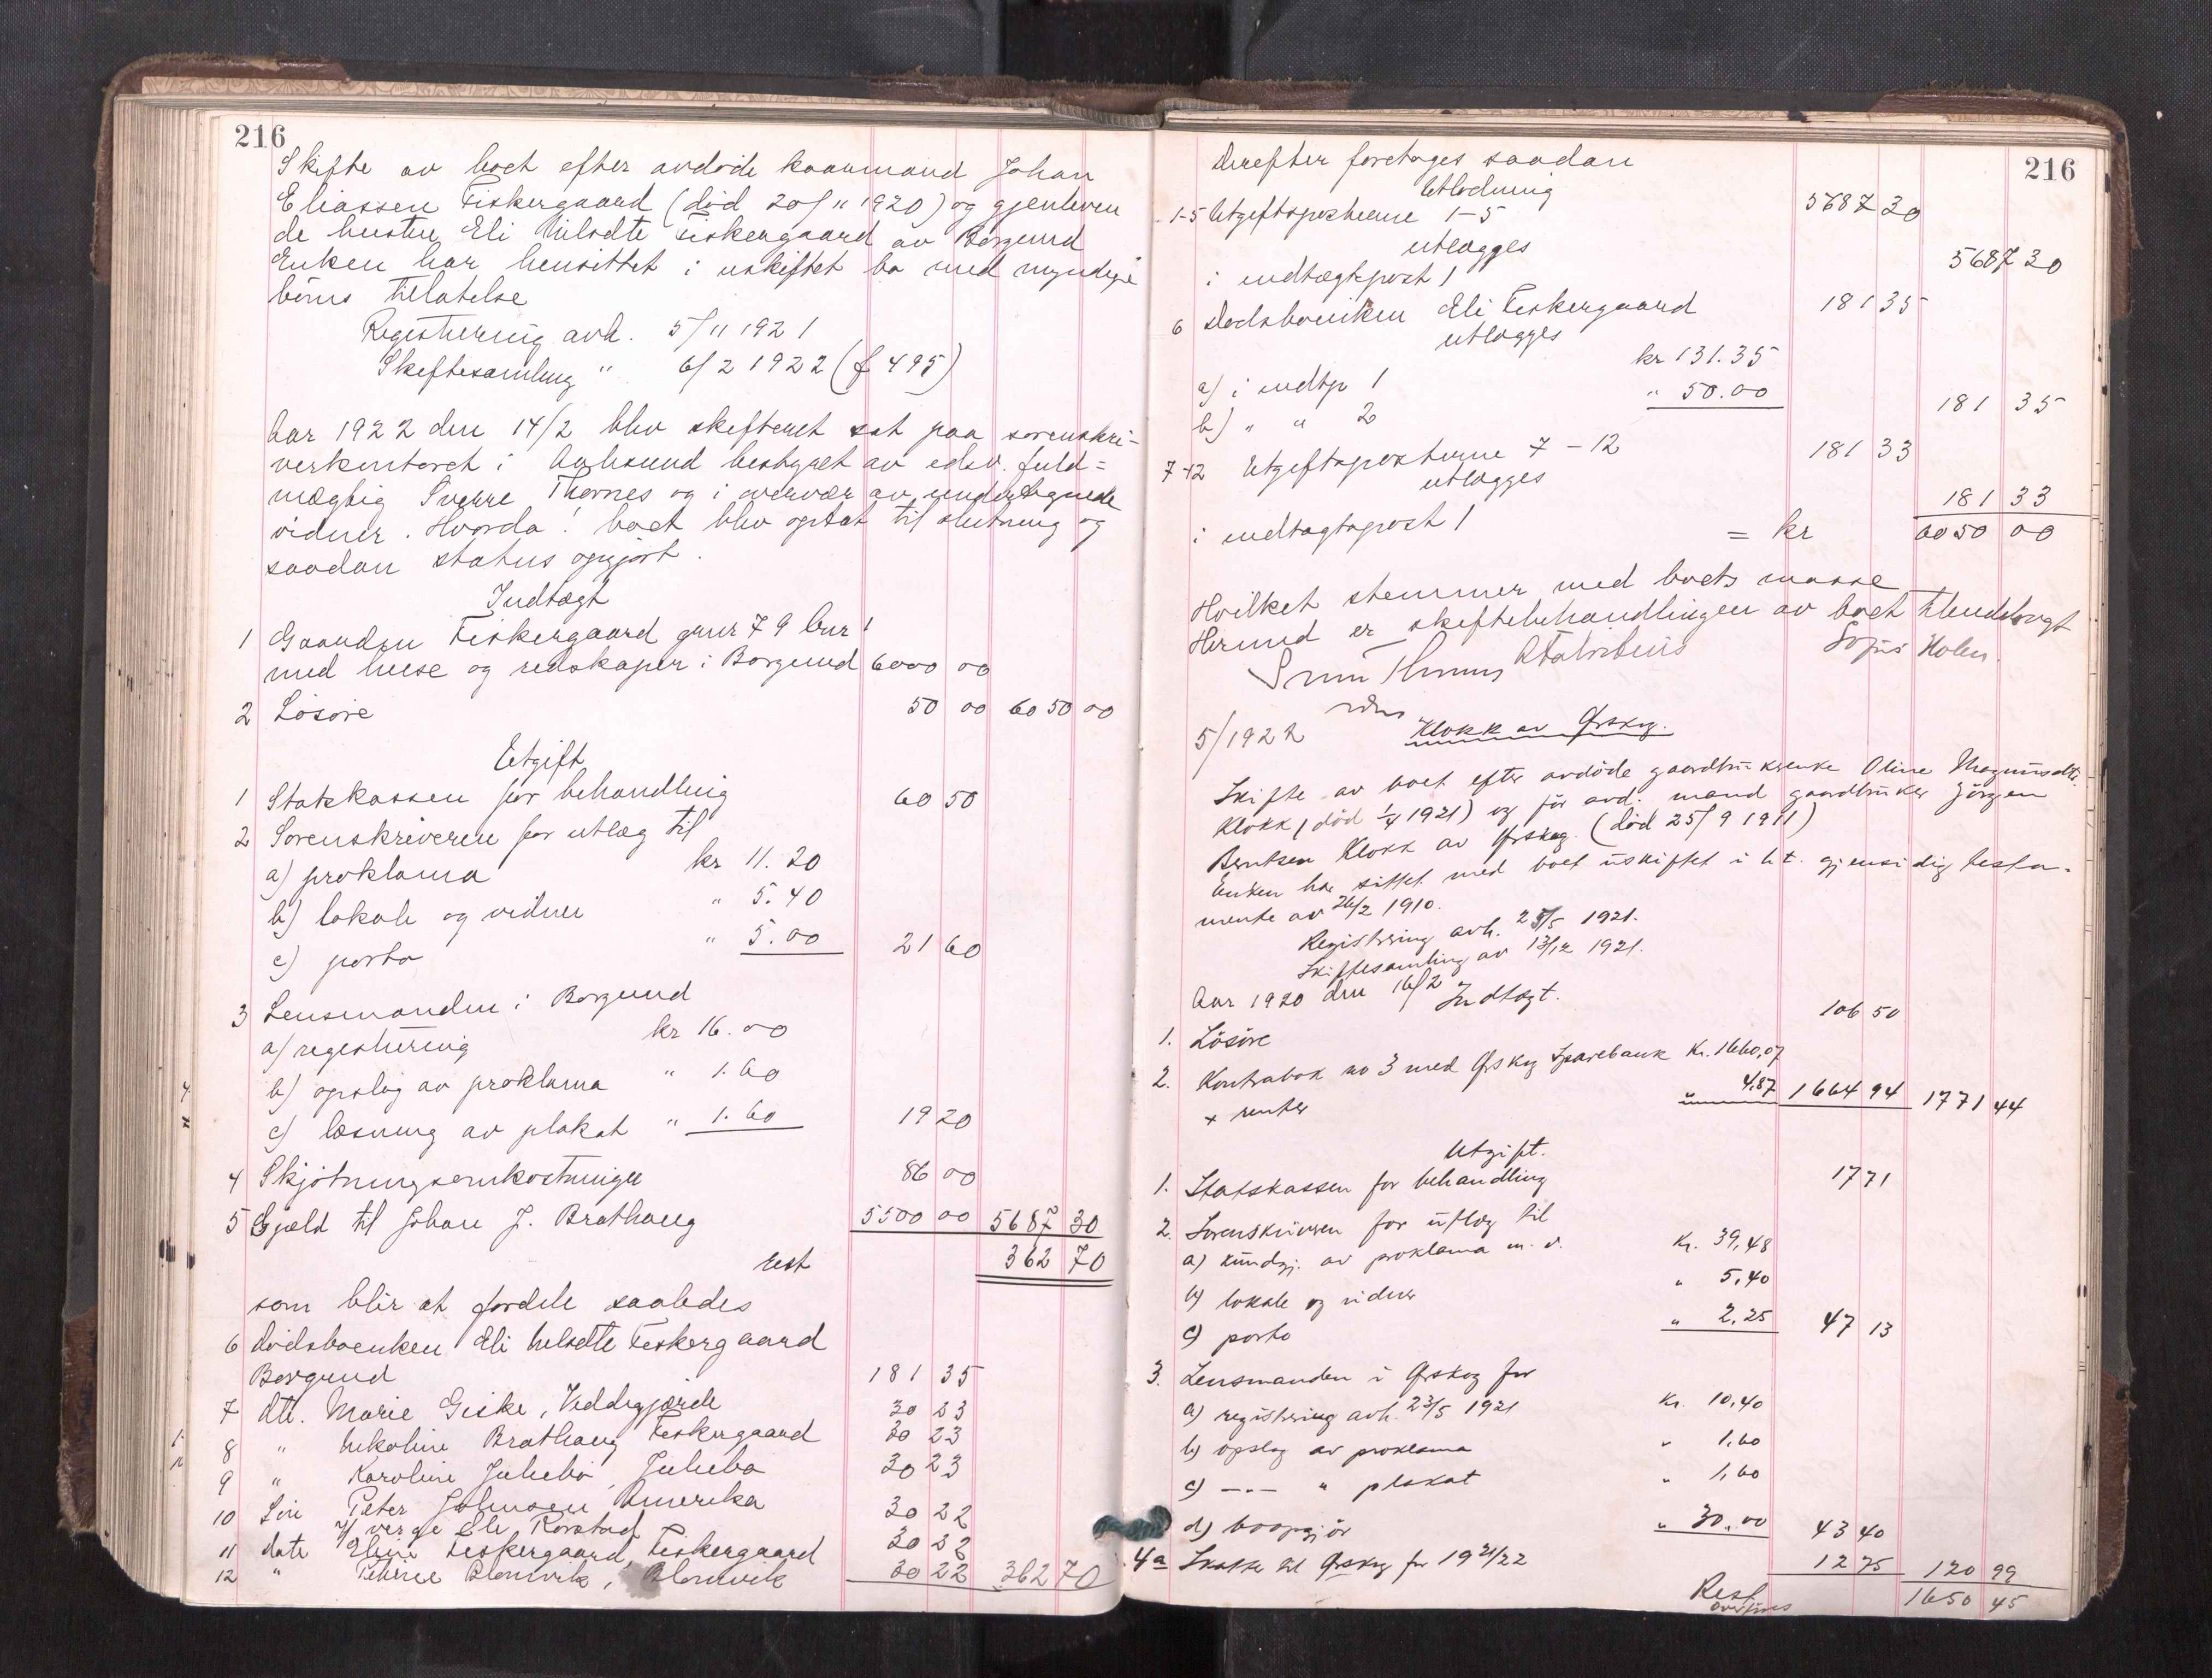 216
Skifte av boet efter avdøde kaarmand Johan
Eliassen Fiskergaard (død 20/11 1920) og gjenleven
de hustru Eli Nilsdtr Fiskergaard av Borgund
Enken har hensittet i uskiftet bo med myndige
børns tillatelse
Registrering avh. 5/11 1921
Skiftesamling " 6/2 1922 (f 495)
Aar 1922 den 14/2 blev skifteret sat paa sorenskri-
verkontoret i Aalesund bestyret av edsv. fuld=
mægtig Sverre Thornes og i overvær av undertegnede
vidner. Hvorda! boet blev optat til slutning og
saadan status opgjort.
Indtægt
1 Gaarden Fiskergaard gnr 79 bnr 1
med huse og redskaper i Borgund 6000 00
2 Løsøre 50 00 6050 00
Utgift
1 Statskassen for behandling 60 50
2 Sorenskriveren for utlæg til
a) proklama kr 11.20
b) lokale og vidner " 5.40
c) porto " 5.00 21 60
3 Lensmanden i Borgund
a) registrering kr 16.00
b) opslag av proklama " 1.60
c) læsning av plakat " 1.60 19 20
4 Skjøtningsomkostninger 86 00
5 Gjæld til Johan J. Brathaug 5500 00 5687 30
rest 362 70
som blir at fordele saaledes
6 Dødsboenken Eli Nilsdtr Fiskergaard
Borgund 181 35
7 dtr. Marie Giske, Veddegjærde 30 23
8 " Nikoline Brathaug Fiskergaard 30 23
9 " Karoline Julebø, Julebø 30 23
10 Søn Peter Johnsen Amerika 30 22
v/ verge Ole Rørstad
11 datr Eline Fiskergaard, Fiskergaard 30 22
12 " Petrine Blomvik, Blomvik 30 22 362 70
216
Derefter foretages saadan
Utlodning
1-5 Utgiftsposterne 1-5 5687 30
utlægges
i indtægtspost 1 5687 30
6 Dødsboenken Eli Fiskergaard 181 35
utlægges
a) i indtp 1 kr 131.35
b) " " 2 " 50.00 181 35
7-12 Utgiftsposterne 7-12 181 33
utlægges
i indtægtspost 1 181 33
= kr 6050 00
Hvilket stemmer med boets masse
Hermed er skiftebehandlingen av boet tilendebragt
Sofus Holen
5/1922 Klokk av Ørskog.
Skifte av boet efter avdøde gaardbrukerenke Oline Magnusdtr.
Klokk (død 1/4 1921) og før avd. mand gaardbruker Jørgen
Berntsen Klokk av Ørskog (død 25/9 1911)
Enken har sittet med boet uskiftet i h.t. gjensidig testa-
mente av 26/2 1910.
Registrering avh. 23/5 1921.
Skiftesamling av 13/12 1921.
Aar 1920 den 16/2
Indtægt.
1. Løsøre 106 50
2. Kontrabok no 3 med Ørskog Sparebank Kr. 1660,07
+ renter " 4,87 1664 94 1771 44
Utgift.
1. Statskassen for behandling 17 71
2. Sorenskriveren for utlæg til
a) kundgj. av proklama m.v. Kr. 39,48
b) lokale og vidner " 5,40
c) porto " 2,25 47 13
3. Lensmanden i Ørskog for
a) registrering avh. 23/5 1921 Kr. 10,40
b) opslag av proklama " 1,60
c) —.— " plakat " 1,60
d) boopgjør " 30,00 43 40
4a Skatter til Ørskog for 1921/22 12 75 120 99
Rest 1650 45
overføres